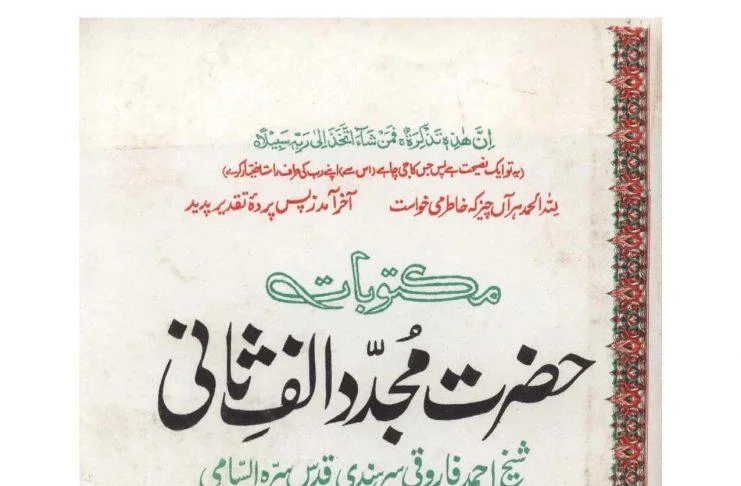 اِنَّ هٰذِهٖ تَذْكِرَةٌ ۚ فَمَنْ شَآءَ اتَّخَذَ اِلٰى رَبِّهٖ سَبِيْلًا ۝
(یہ تو ایک نصیحت ہے پس جس کا جی چاہے (اس سے) اپنے رب کی طرف راستہ اختیار کرے)
للہ الحمد ہر آں چیز کہ خاطر می خواست آخر آمد ز پس پردۂ تقدیر پدید
مکتوبات
حضرت مُجدّد الفِ ثانی
شیخ احمد فاروقی سرہندی قدس سرہ السّامی